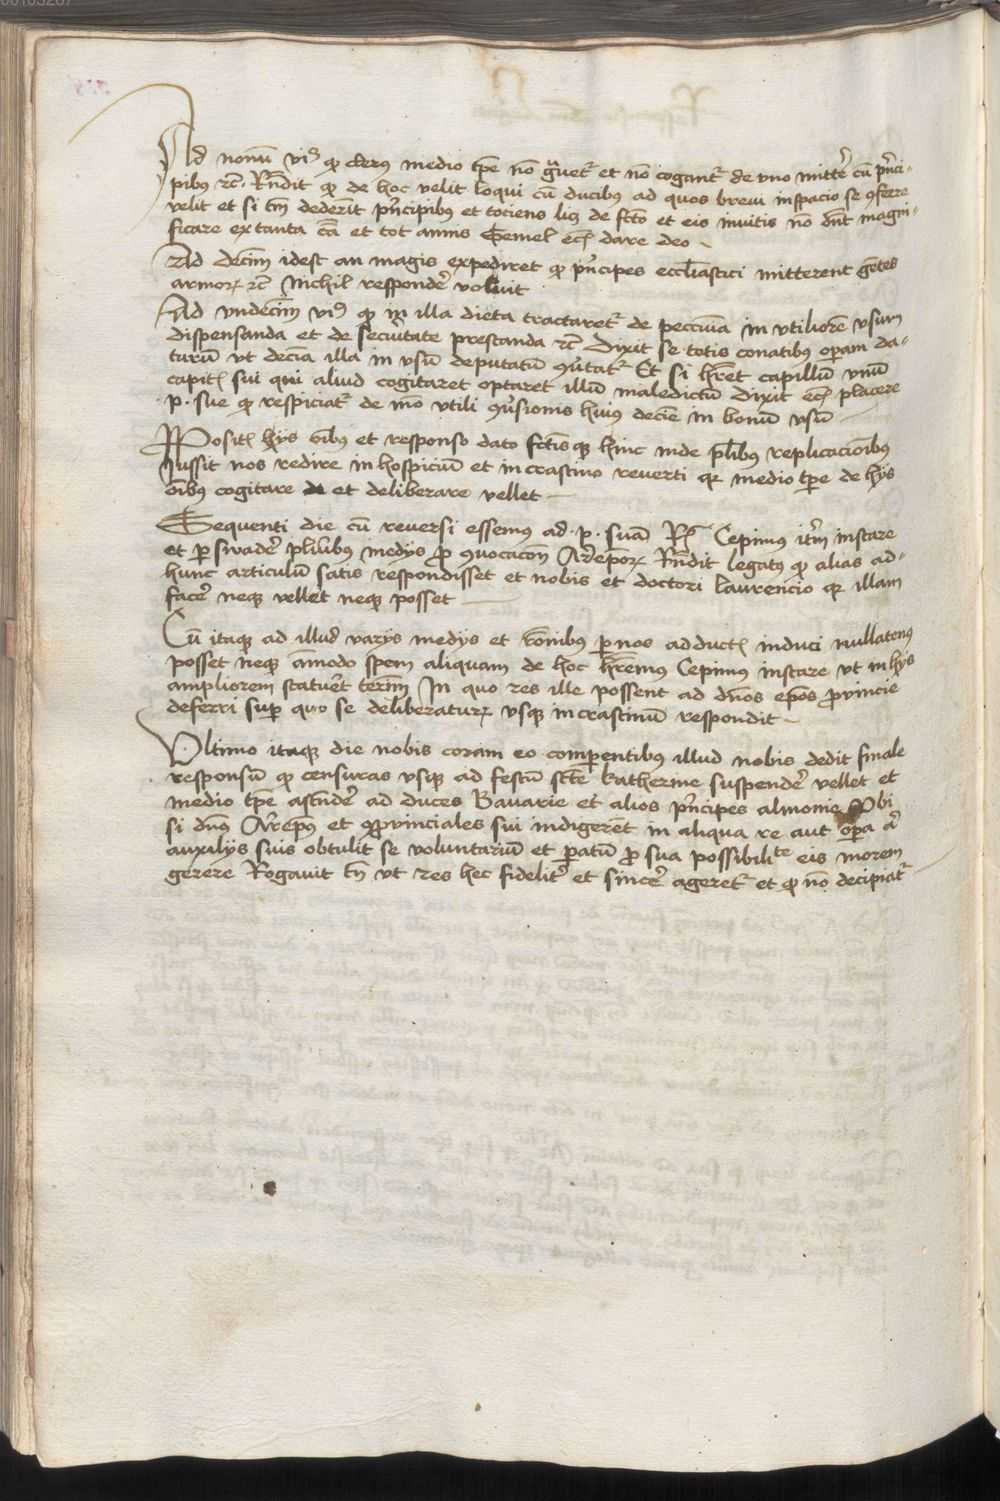 Ad nonũ vꝫ ꝙ clerus medio tp̃e nõ gͣuet᷑ et nõ cogant᷑ de vno mitter̃ cũ pͥnci-
pibꝰ ꝛc̃. Rñdit ꝙ de hoc velit loqui cũ ducibus ad quos breui in spacio se ꝯferre
velit et si tm̃ dederĩt pͥncipibus et totiens licꝫ de fc̃to et eis inuitis nõ dñt magni-
ficare ex tanta cã et tot annis Semel ec̃ dare deo
Ad decim̃ idest an magis expediret ꝙ pͥncipes eccl̃iastici mitterent gẽtes
armoꝝ ꝛc̃ Nichil responder̃ voluit
Ad vndecim̃ vꝫ ꝙ in illa dieta tractaret᷑ de peccũia in vtiliorẽ vsum
dispensanda et de secur̃itate prestanda ꝛc̃ Dixit se totis conatibꝰ oꝑam da-
turũ vt decĩa illa in vsũ deputatũ ꝯũtat᷑ Et si hr̃et capillũ vnũ
capitꝭ sui qui aliud cogitaret optaret illũ maledictũ Dixit ec̃ placere
.p. sue ꝙ respiciat᷑ de mõ vtili ꝯũsionis huiꝰ decĩe in bonũ vsũ
Positꝭ hijs oĩbus et responso dato fc̃tis qꝫ hinc inde pl̃ibus replicacioĩbus
Iussit nos redire in hospiciũ et in crastino reuerti qꝛ medio tp̃e de hijs
oĩbus cogitare et deliberare vellet
Sequenti die cũ reuersi essemus ad .p. suã Cepimus itr̃m instare
et ꝑsuader̃ pl̃ibus medijs ꝓ ꝯuocacõn Ar̃epõꝝ Rñdit legatꝰ ꝙ alias ad-
hunc articulũ satis respondisset et nobis et doctori laurencio qꝛ illam
facer̃ neqꝫ vellet neqꝫ posset
Cũ itaqꝫ ad illud varijs medijs et rõnibus ꝑ nos adductꝭ induci nullatenꝰ
posset neqꝫ ãmodo spem aliquam de hoc hr̃emus Cepimus instare vt in hijs
ampliorem statuer̃t termĩ In quo res ille possent ad dños ep̃os ꝓuincie
deferri suꝑ quo se deliberaturꝝ vsqꝫ in crastinũ respondit
Vltimo itaqꝫ die nobis coram eo comꝑentibus illud nobis dedit finale
responsũ ꝙ censuras vsqꝫ ad festũ scẽ katherine suspender̃ vellet et
medio tp̃e ascẽder̃ ad duces Bauarie et alios pͥncipes almonie Vbi
si dñs Ar̃epũs et ꝯꝓuinciales sui indigerẽt in aliqua re aut oꝑa ac̃
auxilijs suis obtulit se voluntariũ et ꝑatũ ꝓ sua possibilitᵗᵉ eis morem
gerere Rogauit tñ vt res hec fidelit᷑ et sincer̃ ageret᷑ et ꝙ nõ decipiat᷑